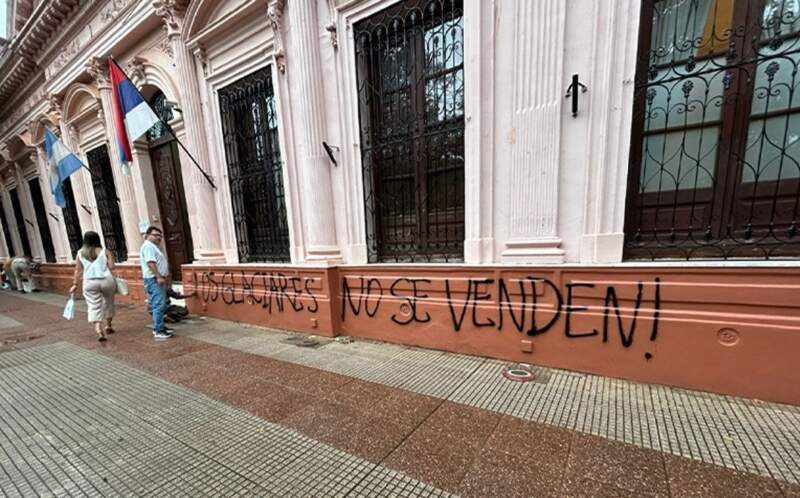 LOS GLACIARES NO SE VENDEN!